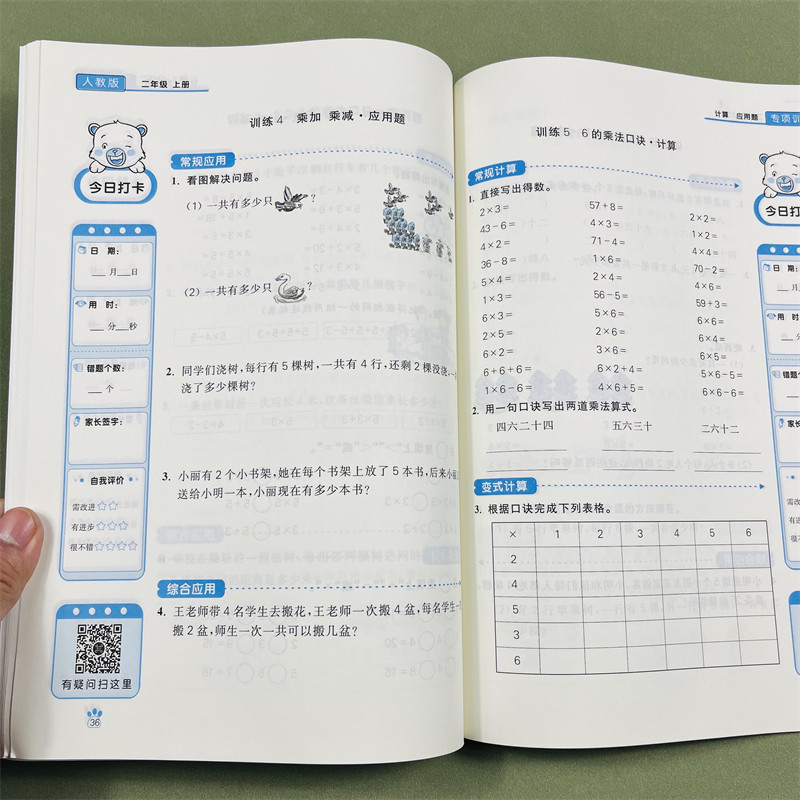 人教版
二年级 上册
训练4 乘加 乘减·应用题
今日打卡
日 期：
月 日
用 时：
分 秒
错题个数：
个
家长签字：
自我评价
需改进☆☆
有进步☆☆☆
很不错☆☆☆☆
有疑问扫这里
36
常规应用
1. 看图解决问题。
(1) 一共有多少只 ？
(2) 一共有多少只 ？
2. 同学们浇树，每行有5棵树，一共有4行，还剩2棵没浇，一
浇了多少棵树？
3. 小丽有2个小书架，她在每个书架上放了5本书，后来小丽
送给小明一本，小丽现在有多少本书？
综合应用
4. 王老师带4名学生去搬花，王老师一次搬4盆，每名学生一
搬2盆，师生一次一共可以搬几盆？
计算 应用题 专项训
训练5 6的乘法口诀·计算
常规计算
1. 直接写出得数。
2×3= 57+8= 2×2=
43-6= 4×3= 1×2=
4×2= 71-4= 4×4=
36-8= 1×6= 70-2=
5×4= 2×4= 4×6=
1×3= 56-5= 59+3=
6×3= 5×6= 6×6=
2×5= 2×6= 6×4=
6×2= 3×6= 6×5=
6+6+6= 6×2+4= 5×6-5=
1×6-6= 4×6+5= 6×6-6=
2. 用一句口诀写出两道乘法算式。
四六二十四 五六三十 二六十二
变式计算
3. 根据口诀完成下列表格。
× 1 2 3 4 5 6
2
4
5
3
6
今日打
日 期：
月
用 时：
分
错题个
个
家长签
自我
需改进
有进步
很不错